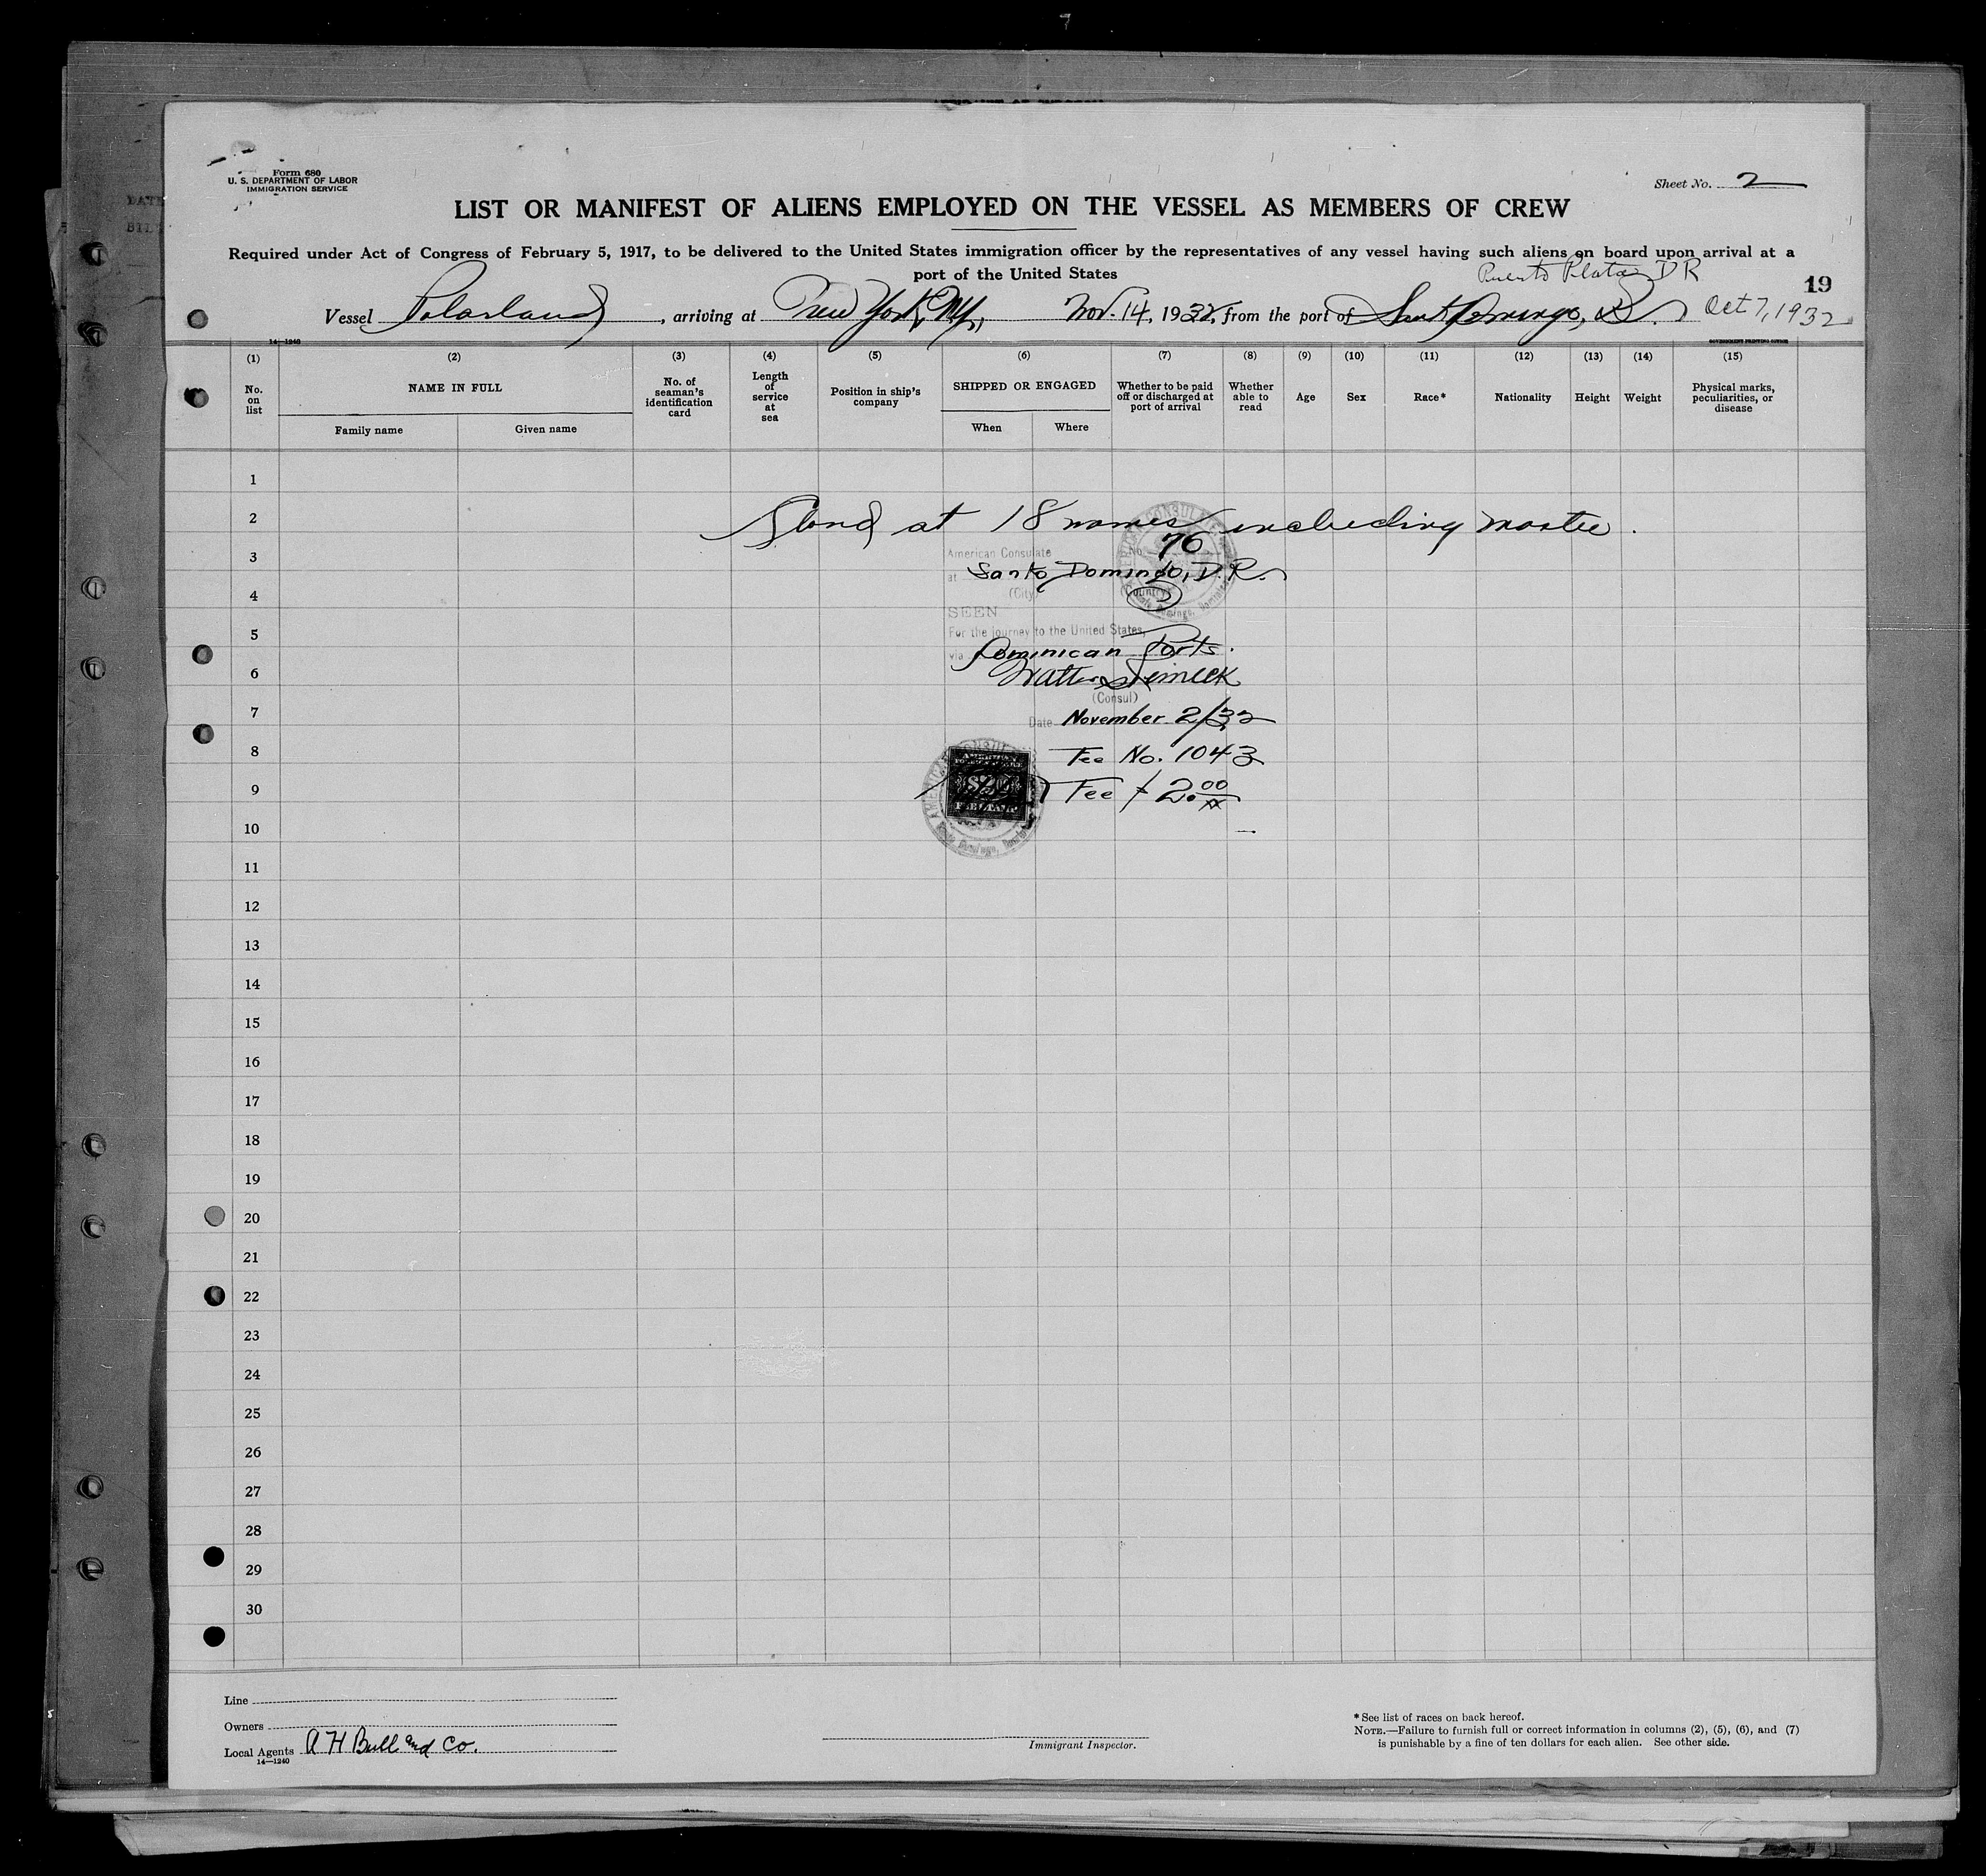 Form 680
U. S. DEPARTMENT OF LABOR
IMMIGRATION SERVICE
Sheet No. 2
LIST OR MANIFEST OF ALIENS EMPLOYED ON THE VESSEL AS MEMBERS OF CREW
Required under Act of Congress of February 5, 1917, to be delivered to the United States immigration officer by the representatives of any vessel having such aliens on board upon arrival at a
port of the United States
Puerto Plata, D R
19
Vessel Polarland, arriving at New York, N.Y., Nov. 14, 1932, from the port of Santo Domingo, D. Oct 7, 1932
14—1240
GOVERNMENT PRINTING OFFICE
(1) (2) (3) (4) (5) (6) (7) (8) (9) (10) (11) (12) (13) (14) (15)
No. on list
NAME IN FULL
Family name
Given name
No. of seaman's identification card
Length of service at sea
Position in ship's company
SHIPPED OR ENGAGED
When
Where
Whether to be paid off or discharged at port of arrival
Whether able to read
Age
Sex
Race*
Nationality
Height
Weight
Physical marks, peculiarities, or disease
1
2 at 18 names including master.
No. 76
3 American Consulate
at Santo Domingo, D.R.
4 (City) (Country)
SEEN
5 For the journey to the United States,
via Dominican Ports.
6
(Consul)
7 Date November 2/32
8 Fee No. 1043
9 Fee $ 2.00
10
11
12
13
14
15
16
17
18
19
20
21
22
23
24
25
26
27
28
29
30
Line
Owners
Local Agents A H Bull and Co.
14—1240
Immigrant Inspector.
* See list of races on back hereof.
NOTE.—Failure to furnish full or correct information in columns (2), (5), (6), and (7)
is punishable by a fine of ten dollars for each alien. See other side.